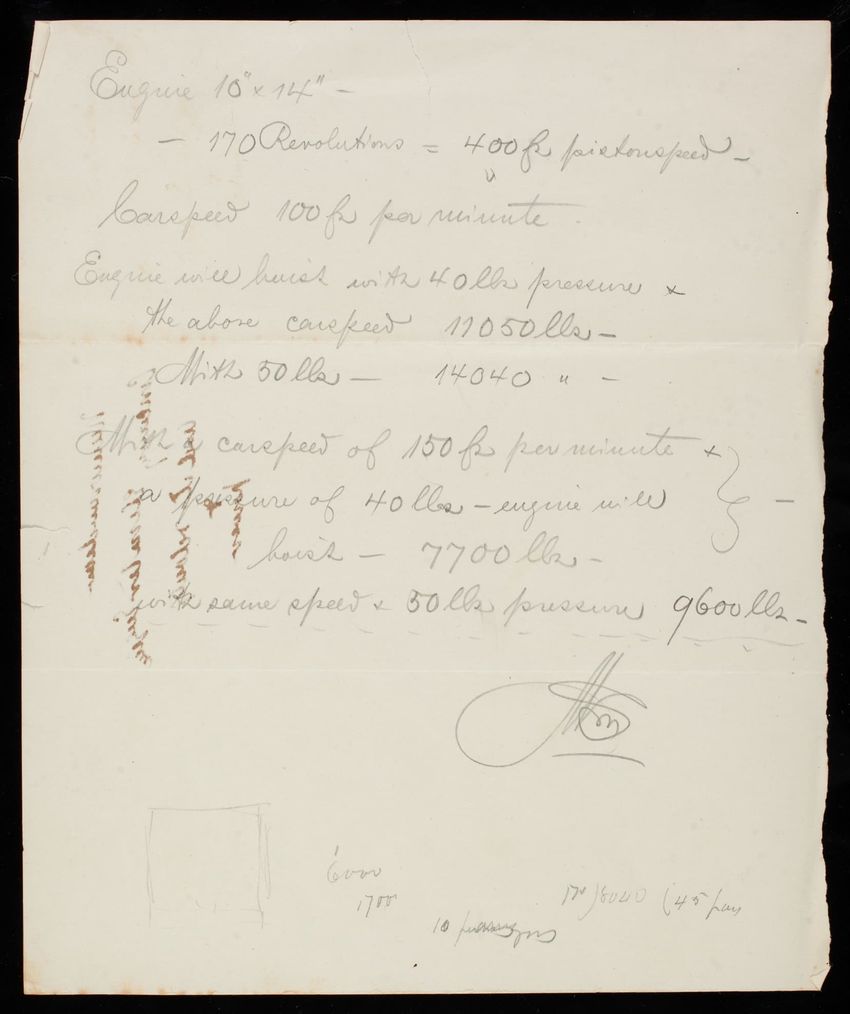 Engine 10" x 14" —
— 170 Revolutions = 400 ft pistonspeed —
Carspeed 100 ft per minute.
Engine will hoist with 40 lbs pressure &
the above carspeed 11050 lbs —
With 50 lbs — 14040 " —
With a carspeed of 150 ft per minute &
a pressure of 40 lbs — engine will } —
hoist — 7700 lbs —
with same speed & 50 lbs pressure 9600 lbs —
6000
1700
170 ) 8040 ( 45 pas
10 passengers